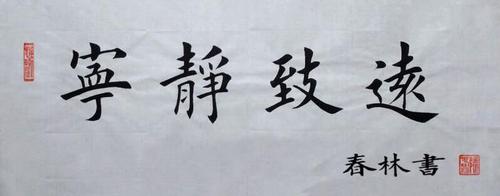 寧靜致遠
春林書